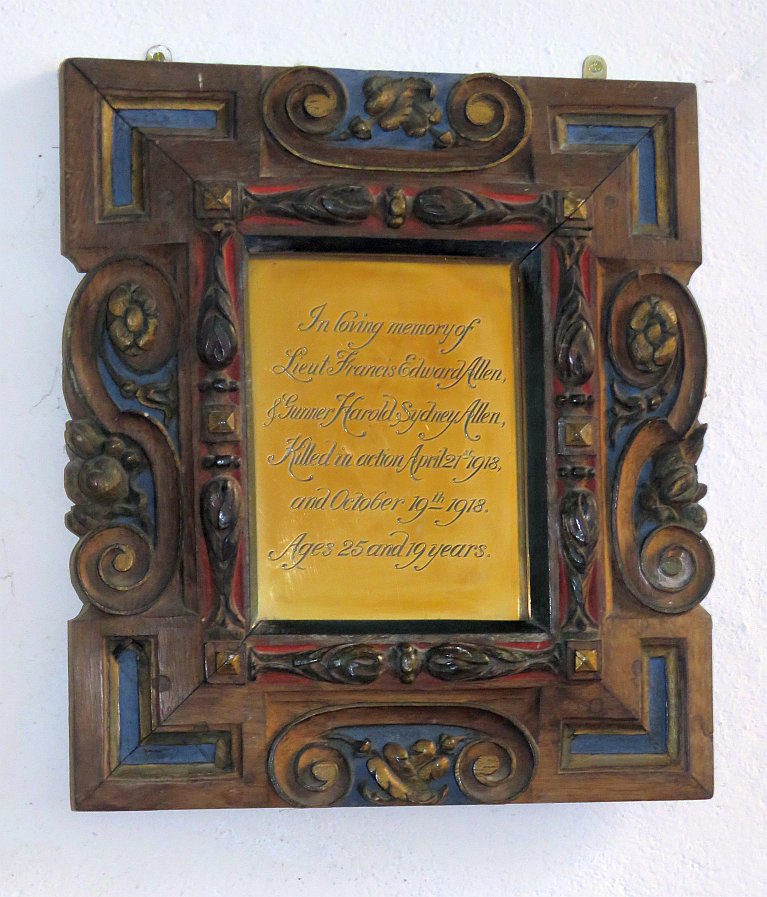 In loving memory of
Lieut Francis Edward Allen,
& Gunner Harold Sydney Allen,
Killed in action April 21st 1918,
and October 19th 1918.
Ages 25 and 19 years.